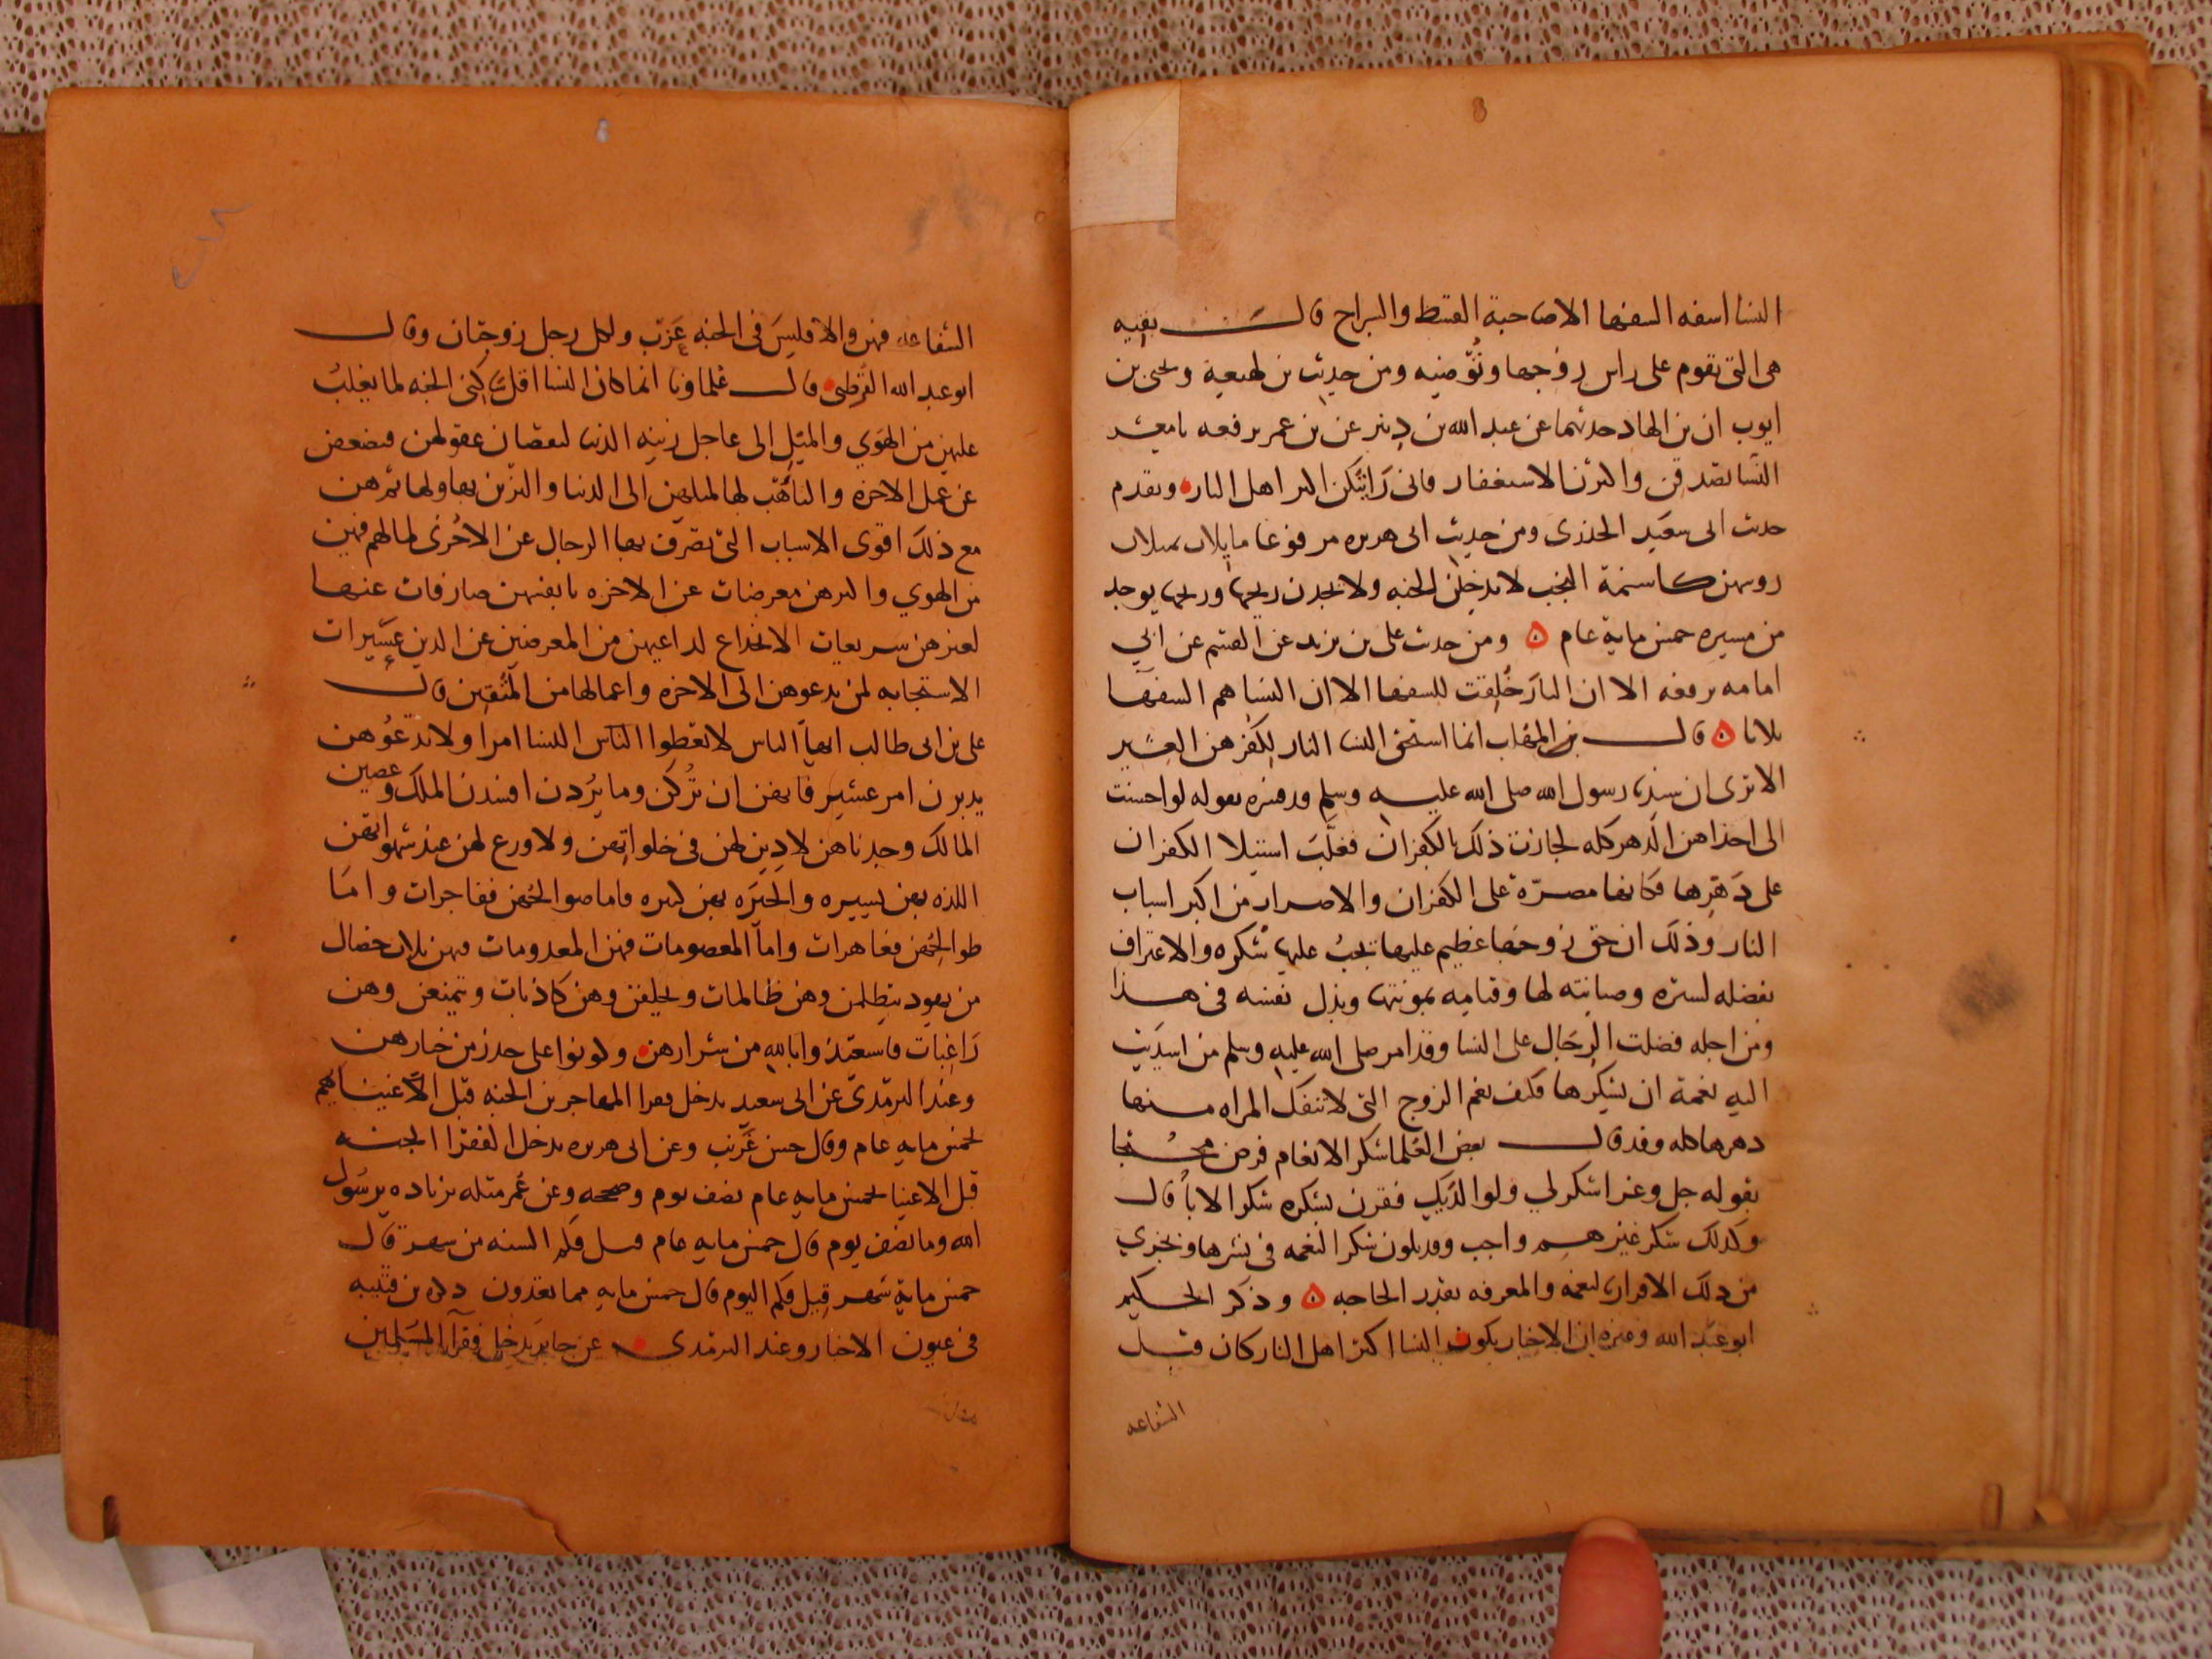 النسا اسفه السفها الا صاحبة القسط والسراج قال بقيه
هى التى تقوم على راس زوجها وتُوّضيه ومن حديث بن لهيعة ويحيى بن
ايوب ان بن الهاد حدثهما عن عبد الله بن دينر عن بن عمر يرفعه يا معشر
النسا تصدقن واكثرن الاستغفار فانى رايتكن اكثر اهل النار وتقدم
حديث ابى سعيد الخدرى ومن حديث ابى هريره مرفوعا مايلات مميلات
روسهن كاسنمة البخت لا يدخلن الجنه ولا يجدن ريحها وريحها يوجد
من مسيره خمس ماية عام ومن حديث على بن يزيد عن القسم عن ابي
امامه يرفعه الا ان النار خُلقت للسفها الا ان النسا هم السفها
ثلاثا قال بن المهلب انما استحق النسا النار لكفرهن العشير
الا ترى ان سيدنا رسول الله صلى الله عليه وسلم قد فسره بقوله لو احسنت
الى احداهن الدهر كله لجازت ذلك بالكفران فغلب استيلا الكفران
على دهرها فكانها مصرّة على الكفران والاصرار من اكبر اسباب
النار وذلك ان حق زوجها عظيم عليها يجب عليها شكره والاعتراف
بفضله لستره وصيانته لها وقيامه بمونتها وبذل نفسه فى هذا
ومن اجله فضلت الرجال على النسا وقد امر صلى الله عليه وسلم من اسديت
اليه نعمة ان يشكرها فكيف نعم الزوج التى لا تنفك المراه منها
دهرها كله وقد قال بعض العلما شكر الانعام فرض محتجا
بقوله جل وعز اشكر لي ولوالديك فقرن بشكره شكر الابا قال
وكذلك شكر غيرهم واجب وقد يكون شكر النعمه فى نشرها ويجزي
من ذلك الاقرار بالنعمه والمعرفه بقدر الحاجه وذكر الحكيم
ابو عبد الله وغيره ان الاخبار بكون النسا اكثر اهل النار كان قبل
الشفاعه
الشفاعه فهن والا فليس فى الجنه عزب ولكل رجل زوجتان وقال
ابو عبد الله القرطبى قال علماونا انما كان النسا اقل ساكنى الجنه لما يغلب
عليهن من الهوي والميل الى عاجل زينه الدنيا لنقصان عقولهن فيضعفن
عن عمل الاخره والتاهب لها لميلهن الى الدنيا والتزين بها ولها ثم هن
مع ذلك اقوى الاسباب التى تصرف بها الرجال عن الاخرى لما لهم فيهن
من الهوي واكثرهن معرضات عن الاخره بانفسهن صارفات عنها
لغيرهن سريعات الانخداع لداعيهن من المعرضين عن الدين عسيرات
الاستجابه لمن يدعوهن الى الاخره واعمالها من المتقين قال
على بن ابى طالب ايها الناس لا تعطوا الناس النسا امرا ولا تدعوهن
يدبرن امر عشير فانهن ان تُركن وما يردن افسدن الملك وعصين
المالك وجدناهن لا دين لهن فى خلواتهن ولا ورع لهن عند شهواتهن
اللذه بهن يسيره والحيره بهن كثيره فاما صوالحهن ففاجرات واما
طوالحهن فعاهرات واما المعصومات فهن المعدومات فيهن ثلاث خصال
من يهود يتظلمن وهن ظالمات ويحلفن وهن كاذبات ويتمنعن وهن
راغبات فاستعيذوا بالله من شرارهن وكونوا على حذر من خيارهن
وعند الترمذى عن ابى سعيد يدخل فقرا المهاجرين الجنه قبل اغنياهم
بخمس مايه عام وقال حسن غريب وعن ابى هريره يدخل الفقرا الجنه
قبل الاغنيا بخمس مايه عام نصف يوم وصححه وعن عمر مثله بزياده يرسول
الله وما نصف يوم قال خمس مايه عام قيل فكم السنه من شهر قال
خمس ماية شهر قيل فكم اليوم قال خمس مايه مما تعدون ذكره بن قتيبه
فى عيون الاخبار وعند الترمذى عن جابر يدخل فقرا المسلمين